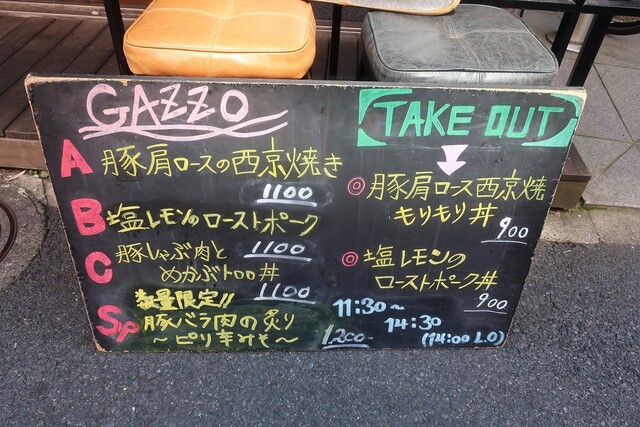 GAZZO
A 豚肩ロースの西京焼き
1100
B 塩レモンのローストポーク
1100
C 豚しゃぶ肉と
めかぶトロロ丼
1100
数量限定!!
Sp 豚バラ肉の炙り
～ピリ辛みそ～
1200
TAKE OUT
◎豚肩ロース西京焼
もりもり丼
900
◎塩レモンの
ローストポーク丼
900
11:30～
14:30
(14:00 L.O)